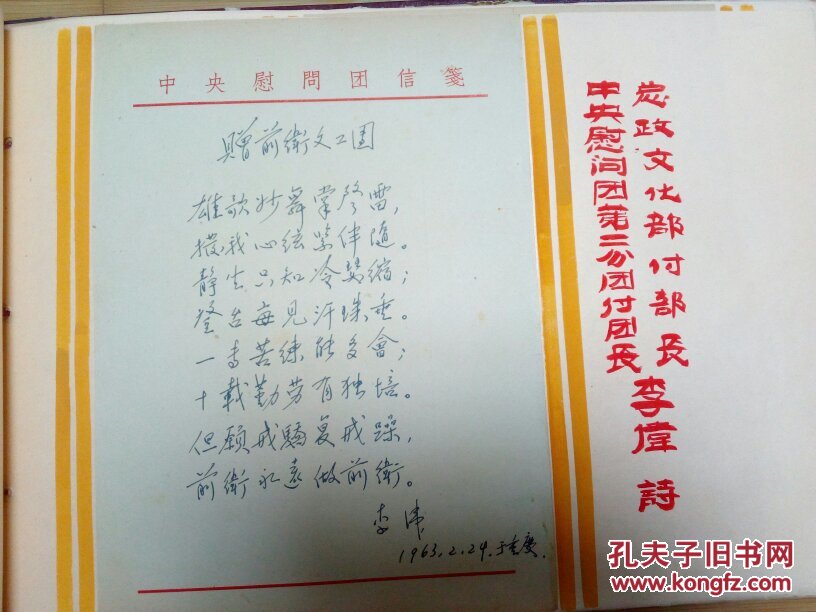 中央慰問团信箋
贈前衛文工團
雄歌妙舞掌聲雷，
撥我心絃紧伴隨。
静坐只知冷 縮；
登台每見汗珠垂。
一专苦練能多會；
十載勤劳有独培。
但願戒驕复戒躁，
前衛永遠做前衛。
李伟
1963.2.24.于重慶.
总政文化部付部长
中央慰问团第二分团付团長 李偉 詩
孔夫子旧书网
www.kongfz.com